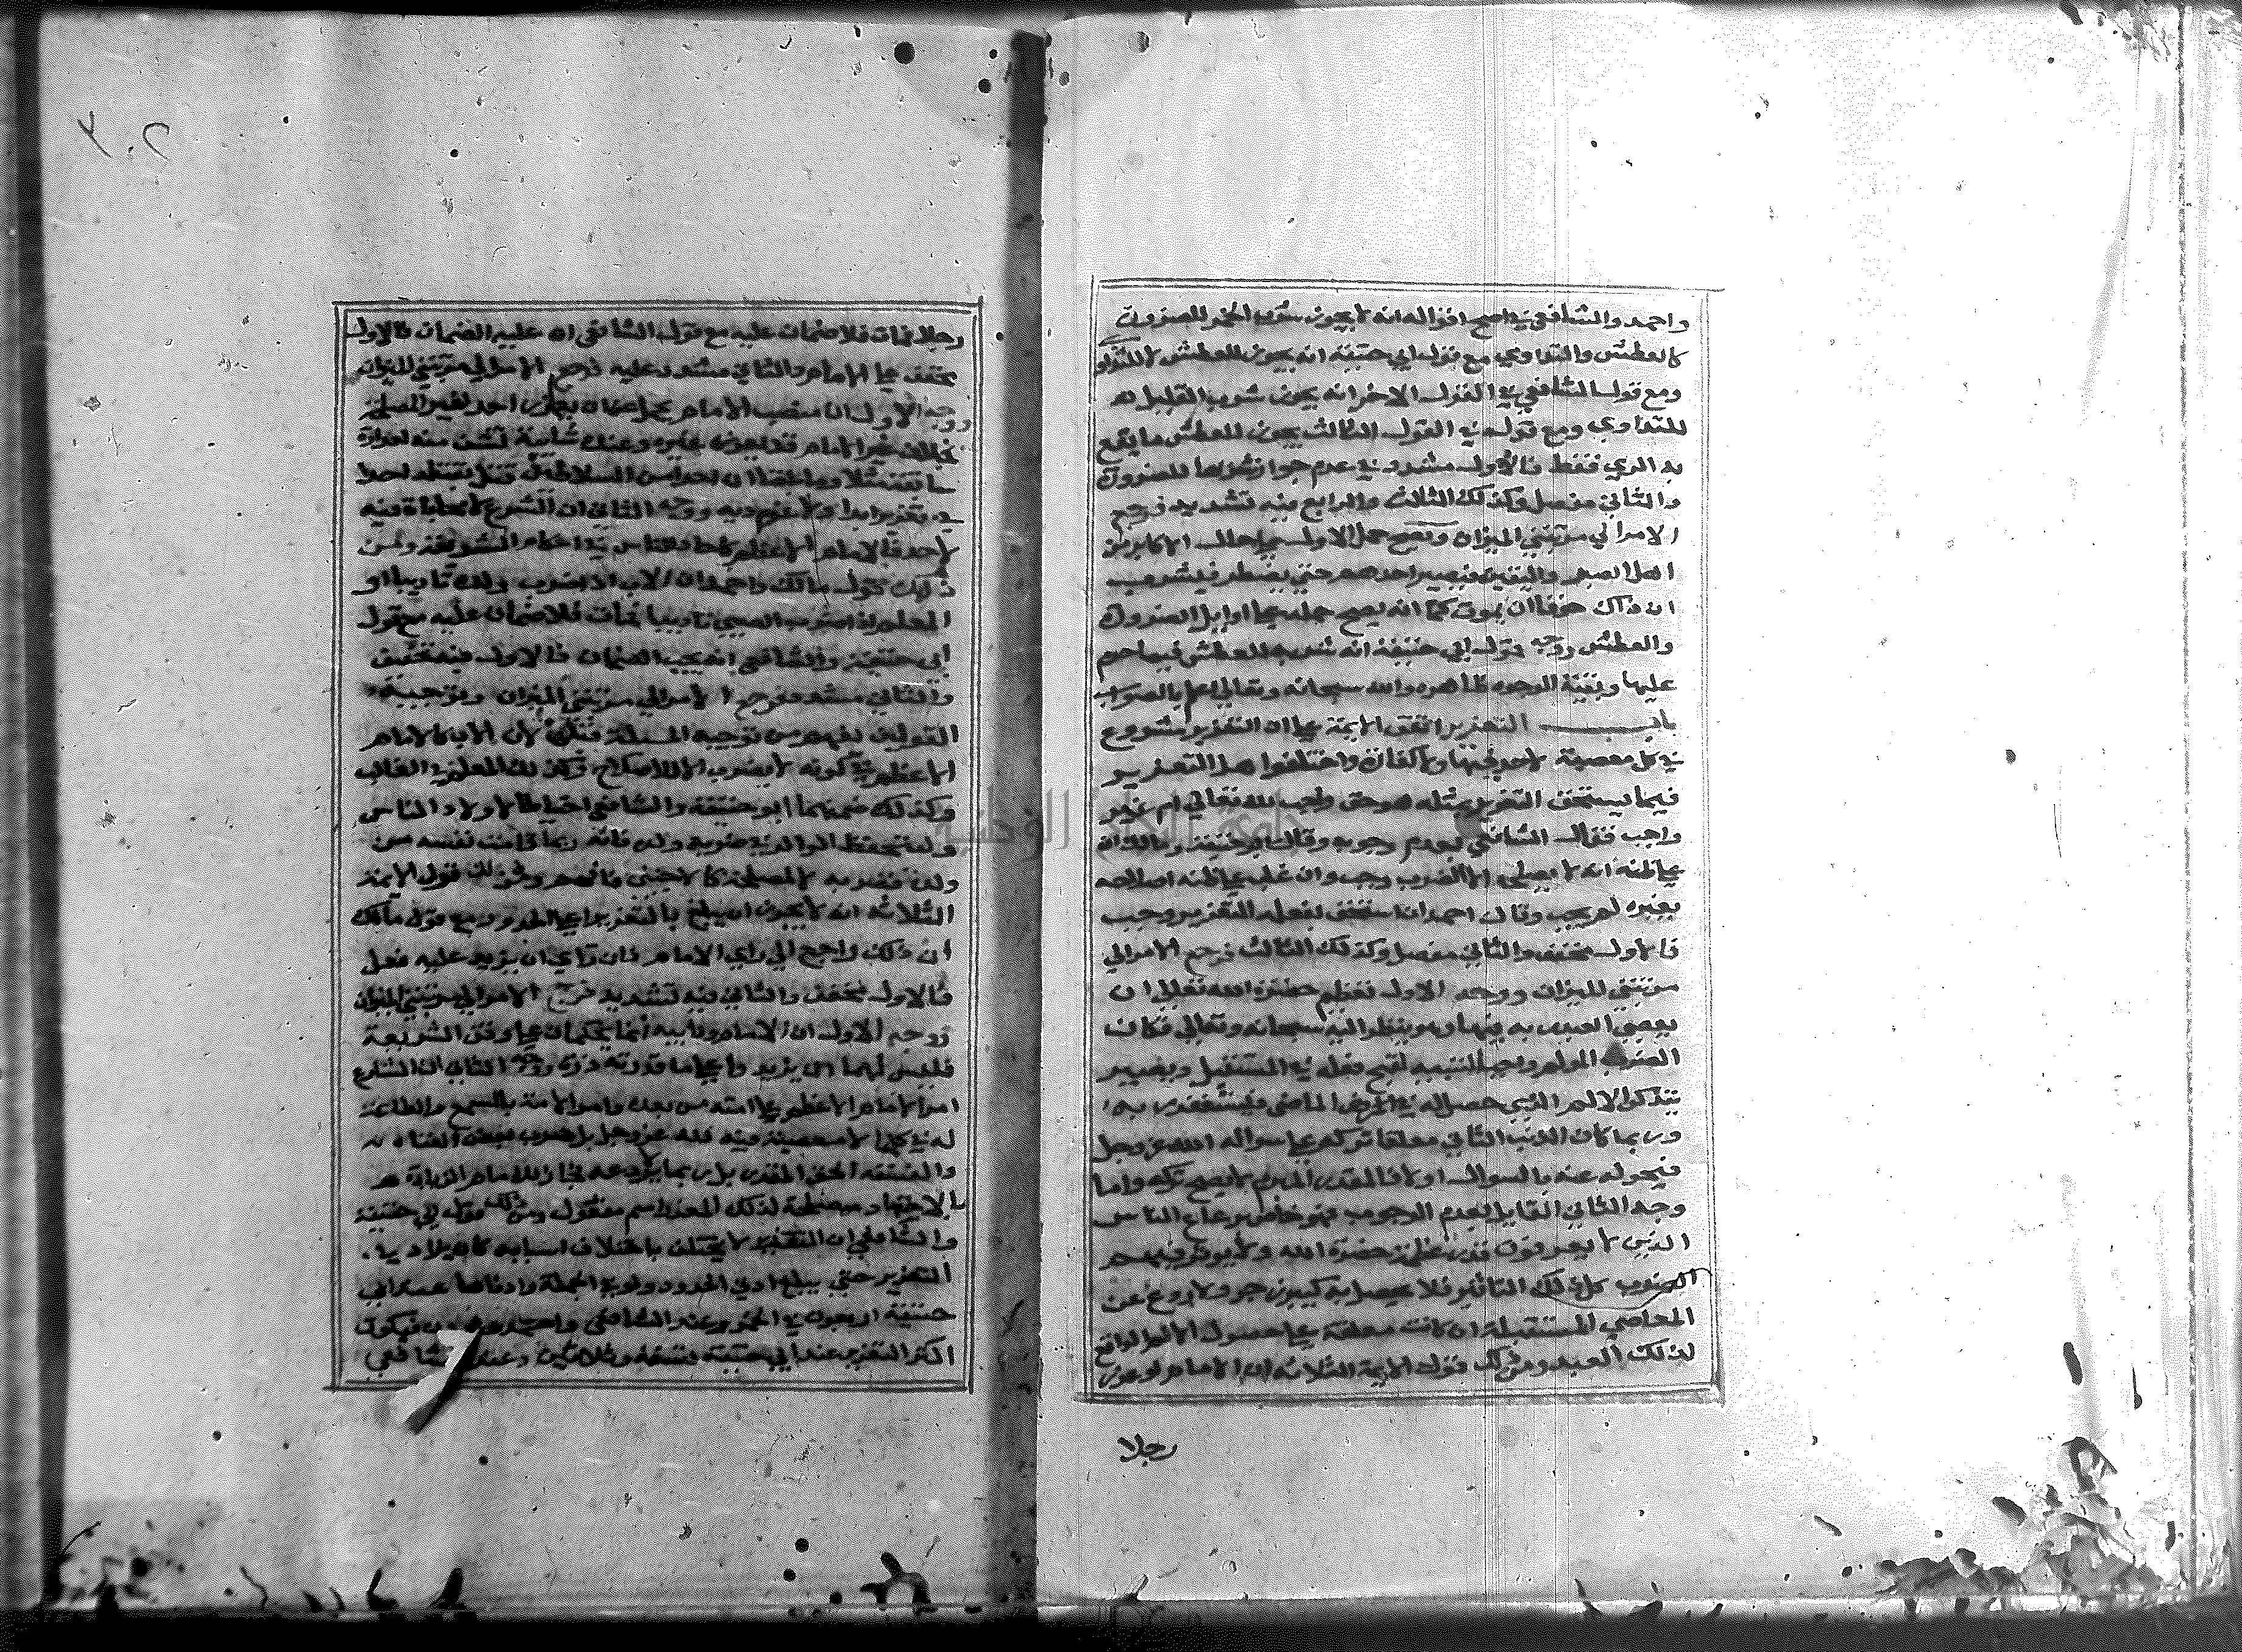 واحمد والشافعي في اصح اقواله انه لا يجوز شرب الخمر للضرورة
كالعطش والتداوي مع قول ابي حنيفة انه يجوز للعطش لا للتداو
ومع قول الشافعي في القول الاخر انه يجوز شرب القليل
للتداوي ومع قوله في القول الثالث يجوز للعطش ما يقع
به الري فقط فالاول مشدد في عدم جواز شربها للضرورة
والثاني مفصل وكذلك الثالث والرابع فيه تشديد فرجع
الامر الي مرتبتي الميزان ويصح حمل الاول علي حال الاكابر من
اهل الصبر واليقين فيصبر احدهم حتي يضطر فيشرب
ان ذاك خوفا ان يموت كما انه يصح حمله علي اوايل الضرورة
والعطش ووجه قول ابي حنيفة انه شربه للعطش فيما حرم
عليها وبقية الوجوه ظاهره والله سبحانه وتعالي اعلم بالصواب
باب التعزير اتفق الايمة علي ان التعزير مشروع
في كل معصية لا حد فيها ولا كفارة واختلفوا هل التعزير
فيما يستحق التعزير بمثله هو حق واجب لله تعالي ام غير
واجب فقال الشافعي بعدم وجوبه وقال ابو حنيفة ومالك ان
علي ظنه انه لا يصلحه الا الضرب وجب وان غلب علي ظنه اصلاحه
بغيره لم يجب وقال احمد ان استحق بفعله التعزير وجب
فالاول مخفف والثاني مفصل وكذلك الثالث فرجع الامر الي
مرتبتي الميزان ووجه الاول تعظيم حضرة الله تعالي ان
يعصي العبد به فيها وهو ينظر اليه سبحانه وتعالي فكان
الضرب المولم واجبا لتنبيه لقبح فعله في المستقبل ويصير
يتذكر الالم الذي حصل له في الماضي فيستغفر به
وربما كان الذنب الثاني معلقا تركه علي سواله الله عز وجل
فيحوله عنه بالسوال اولا فالمقدر المبرم لا يصح تركه واما
وجه الثاني القايل بعدم الوجوب فهو خاص برعاع الناس
الذين لا يعرفون قدر عظمة حضرة الله ولا يوثر فيهم
الضرب كل ذلك التاثير فلا يحصل به كبير زجر ولا روع عن
المعاصي المستقبلة ان كانت معلقة علي حصول الالم الواقع
لذلك العبد ومن ذلك قول الايمة الثلاثة ان الامام لو عزر
رجلا
٢٠٢
رجلا فمات فلا ضمان عليه مع قول الشافعي ان عليه الضمان فالاول
مخفف علي الامام والثاني مشدد عليه فرجع الامر الي مرتبتي الميزان
ووجه الاول ان منصب الامام يجل عن ان يعزر احد لغير المصلحة
بخلاف غير الامام قد يعزر غيره وعنده شايبة تشف منه لعداوة
في تعزير ابدا ولا غرم دية ووجه الثاني ان الشرع لا محاباة فيه
لاحد فالامام الاعظم كاحاد الناس في احكام الشريعة ومن
ذلك قول مالك واحمد ان الاب اذا ضرب ولده تاديبا او
المعلم اذا ضرب الصبي تاديبا فمات فلا ضمان عليه مع قول
ابي حنيفة والشافعي انه يجب الضمان فالاول فيه تخفيف
والثاني مشدد فرجع الامر الي مرتبتي الميزان وتوجيه
القولين يفهم من توجيه المسئلة قبله لان الاب كالامام
الاعظم في كونه لا يضرب الا للاصلاح وكذلك المعلم في الغالب
وكذلك ضمنهما ابو حنيفة والشافعي احتياطا لاولاد الناس
ولده فضربه لا لمصلحة كالاجنبي فافهم ومن ذلك قول الايمة
الثلاثة انه لا يجوز ان يبلغ بالتعزير اعلي الحدود مع قول مالك
ان ذلك راجع الي راي الامام فان راي ان يزيد عليه فعل
فالاول مخفف والثاني فيه تشديد فرجع الامر الي مرتبتي الميزان
ووجه الاول ان الامام ونايبه انما يحكمان علي وفق الشريعة
فليس لهما ان يزيد واعلي ما قدرته ذرة ووجه الثاني ان الشارع
امن الامام الاعظم علي امته من بعده وامر الامة بالسمع والطاعة
له في كل ما لا معصية فيه لله عز وجل
بالاجتهاد مصلحة لذلك المعزر اسم مفعول ومن ذلك قول ابي حنيفة
والشافعي ان التعزير لا يختلف باختلاف اسبابه
التعزير حتي يبلغ ادني الحدود ولو في الجملة وادناها عند ابي
حنيفة اربعون في الخمر وعند الشافعي واحمد فيكون
اكثر التعزير عند ابي حنيفة تسعة وثلاثين وعند الشافعي